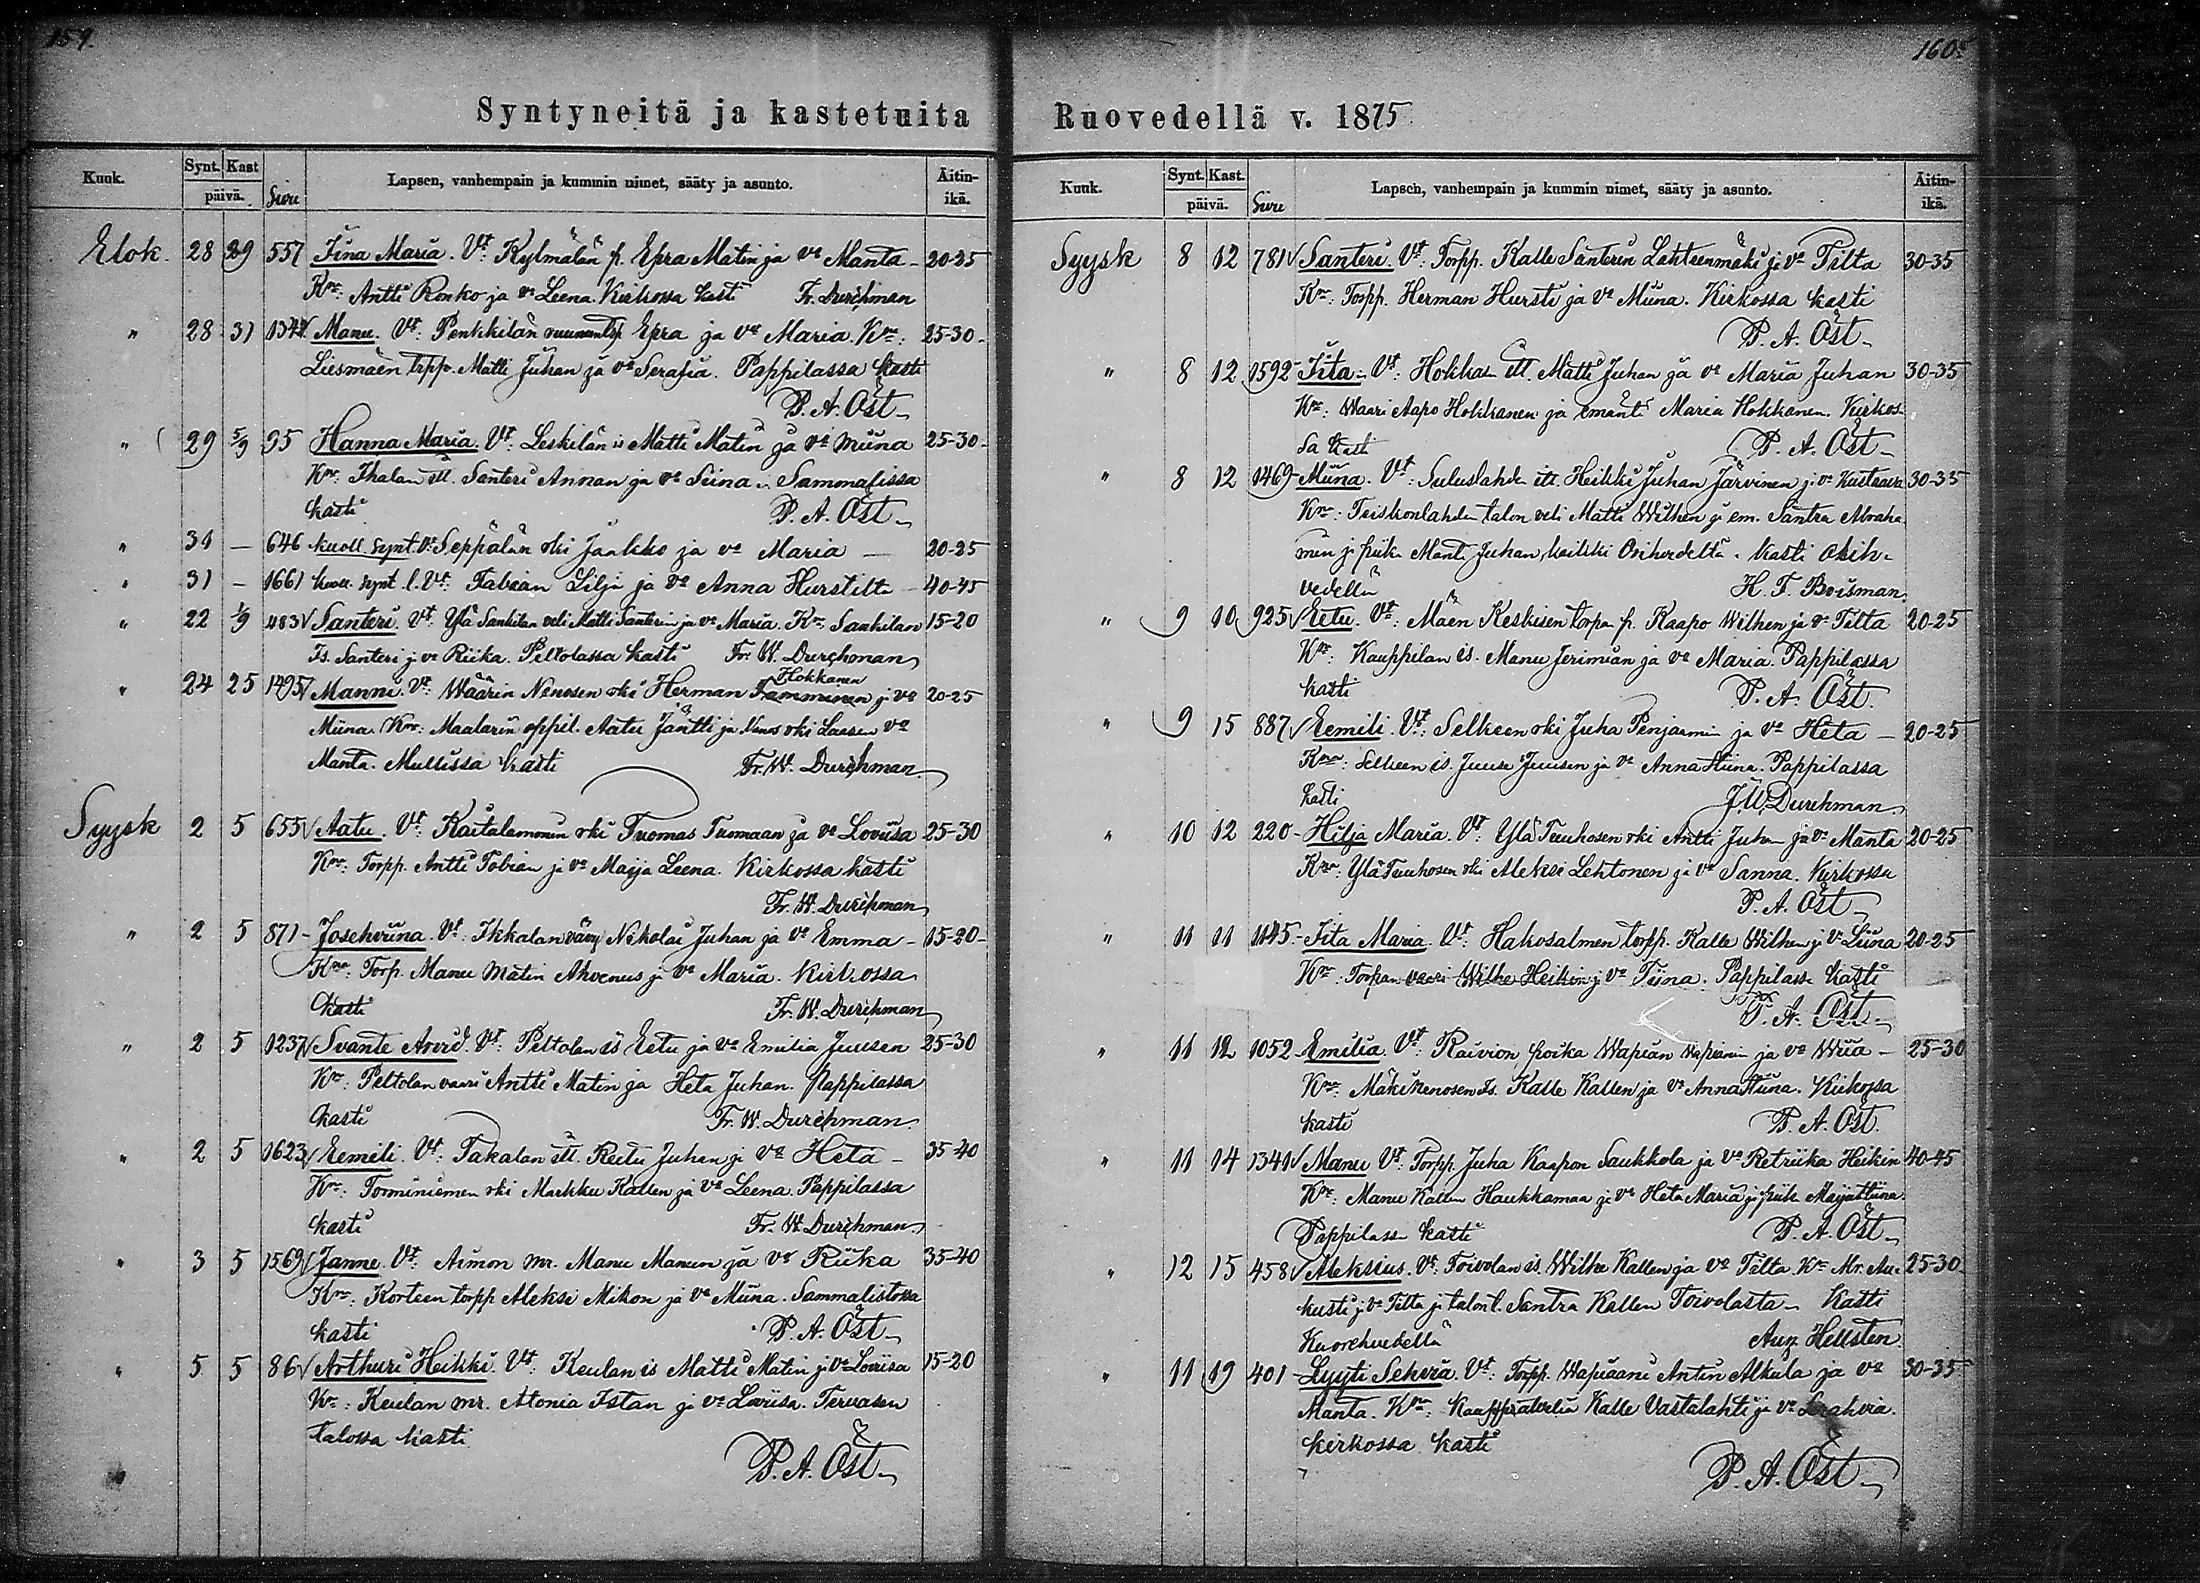 159.
Syntyneitä ja kastetuita
Kuuk. Synt. Kast päivä. Sivu Lapsen, vanhempain ja kummin nimet, sääty ja asunto. Äitin-ikä.
Elok. 28 29 557 Iina Maria. Vt: Kylmälän p. Epra Matin ja va Manta - 20-25
Kr: Antti Ronko ja va Leena. Kirkossa kasti Fr. Durchman
" 28 31 Manu. Vt: Penkkilän Epra ja va Maria. Kr: 25-30
Liesmäen torpp. Matti Juhan ja va Serafia. Pappilassa kasti
P. A. Öst
" 29 5/9 95 Hanna Maria. Vt: Leskilän is Matti Matin ja va Miina 25-30
Kr: Ihalan itl. Santeri Annan ja va Siina. Sammalissa
kasti P. A. Öst
" 31 - 646 kuoll. synt. Vt Seppälän rki Jaakko ja va Maria - 20-25
" 31 - 1661 kuoll. synt. l. Vt: Fabian Lilja ja va Anna Hurstilta - 40-45
" 22 1/9 483 Santeri. Vt: Ylä Sankilan veli Matti Santerin ja va Maria. Kr: Sankilan 15-20
Is. Santeri j. va Riika. Peltolassa kasti Fr. W. Durchman
" 24 25 1495 Manni. Vt: Wäärin Nenosen rki Herman Tamminen j. va 20-25
Hokkanen
Miina. Kr: Maalarin oppil. Aatu Jäntti ja Nenos rki Laasen va
Manta. Mullissa kasti Fr. W. Durchman
Syysk 2 5 655 Aatu. Vt: Kaitalammin rki Tuomas Tuomaan ja va Loviisa 25-30
Kr: Torpp. Antti Tobian ja va Maija Leena. Kirkossa kasti
Fr. W. Durchman
" 2 5 871 - Josehviina. Vt: Ikkalan vävy Nikolai Juhan ja va Emma - 15-20
Kr: Torp. Manu Matin Ahvenus j. va Maria. Kirkossa
kasti Fr. W. Durchman
" 2 5 1237 Svante Arvid. Vt: Peltolan is Eetu ja va Emilia Juusen 25-30
Kr: Peltolan vaari Antti Matin ja Heta Juhan. Pappilassa
kasti Fr. W. Durchman
" 2 5 1623 Eemeli. Vt: Takalan itl. Reetu Juhan ja va Heta - 35-40
Kr: Torminiemen rki Markku Kallen ja va Leena. Pappilassa
kasti Fr. W. Durchman
" 3 5 1569 Janne. Vt: Aimon mr. Manu Manun ja va Riika 35-40
Kr: Korteen torpp Aleksi Mikon ja va Miina. Sammalistossa
kasti P. A. Öst
" 5 5 86 Arthuri Heikki. Vt: Keulan is Matti Matin j. va Loviisa 15-20
Kr: Keulan mr. Atonia Istan ja va Loviisa. Tervasen
talossa kasti
P. A. Öst
160.
Ruovedellä v. 1875
Kuuk. Synt. Kast. päivä. Sivu Lapsen, vanhempain ja kummin nimet, sääty ja asunto. Äitin-ikä.
Syysk 8 12 781 Santeri. Vt: Torpp. Kalle Santerin Lehteenmäki j. va Tilta 30-35
Kr: Torpp. Herman Hursti ja va Miina. Kirkossa kasti
P. A. Öst
" 8 12 1592 Iita - Vt: Hokkas itl. Matti Juhan ja va Maria Juhan 30-35
Kr: Waari Aapo Hokkanen ja emäntä Maria Hokkanen. Kirkos-
sa kasti P. A. Öst
" 8 12 1469 Miina. Vt: Suluslahden itl. Heikki Juhan Järvinen j. va Kustaava 30-35
Kr: Teiskonlahden talon veli Matti Wilhen j. em. Santra Abraha-
min j. piika Manta Juhan, kaikki Orihvedeltä. Kasti Orih-
vedellä H. T. Boisman
" 9 10 925 Eetu. Vt: Mäen Keskisen torpan p. Kaapo Wilhen ja va Tilta 20-25
Kr: Kauppilan is. Manu Jerimian ja va Maria. Pappilassa
kasti P. A. Öst.
" 9 15 887 Eemili. Vt: Selkeen rki Juha Penjaamin ja va Heta - 20-25
Kr: Selkeen is. Juuse Juusen ja va Anna Stiina. Pappilassa
kasti F. W. Durchman
" 10 12 220 - Hilja Maria. Vt: Ylä Tuuhosen rki Antti Juhan ja va Manta 20-25
Kr: Ylä Tuuhosen rki Aleksi Lehtonen ja va Sanna. Kirkossa
P. A. Öst
" 11 11 1145 - Iita Maria. Vt: Hakosalmen torpp. Kalle Wilhen j. va Liina 20-25
Kr: Torpan vaari Wilhe Heikin j. va Tiina. Pappilassa kasti
P. A. Öst
" 11 12 1052 Emilia. Vt: Raivion poika Wapian Wapianin ja va Wiia - 25-30
Kr: Mäki Nenosen Is. Kalle Kallen ja va Anna Stiina. Kirkossa
kasti P. A. Öst.
" 11 14 1341 Manu Vt: Torpp. Juha Kaapon Saukkola ja va Retriika Heikin 40-45
Kr: Manu Kallen Haukkamaa ja va Heta Maria j. piik. Maija Stiina
Pappilassa kasti P. A. Öst
" 12 15 458 Aleksius. Vt: Toivolan is. Wilhe Kallen ja va Tilta Kr: Mr. Au- 25-30
kusti j. va Tilta j. talont. Santra Kallen Toivolasta - Kasti
Kuorehvedellä Aug. Hellsten.
" 11 19 401 - Lyyti Sehvia. Vt: Torpp. Wapiaani Antin Alkula ja va 30-35
Manta. Kr: Kalle Vastalahti ja va
Kirkossa kasti
P. A. Öst